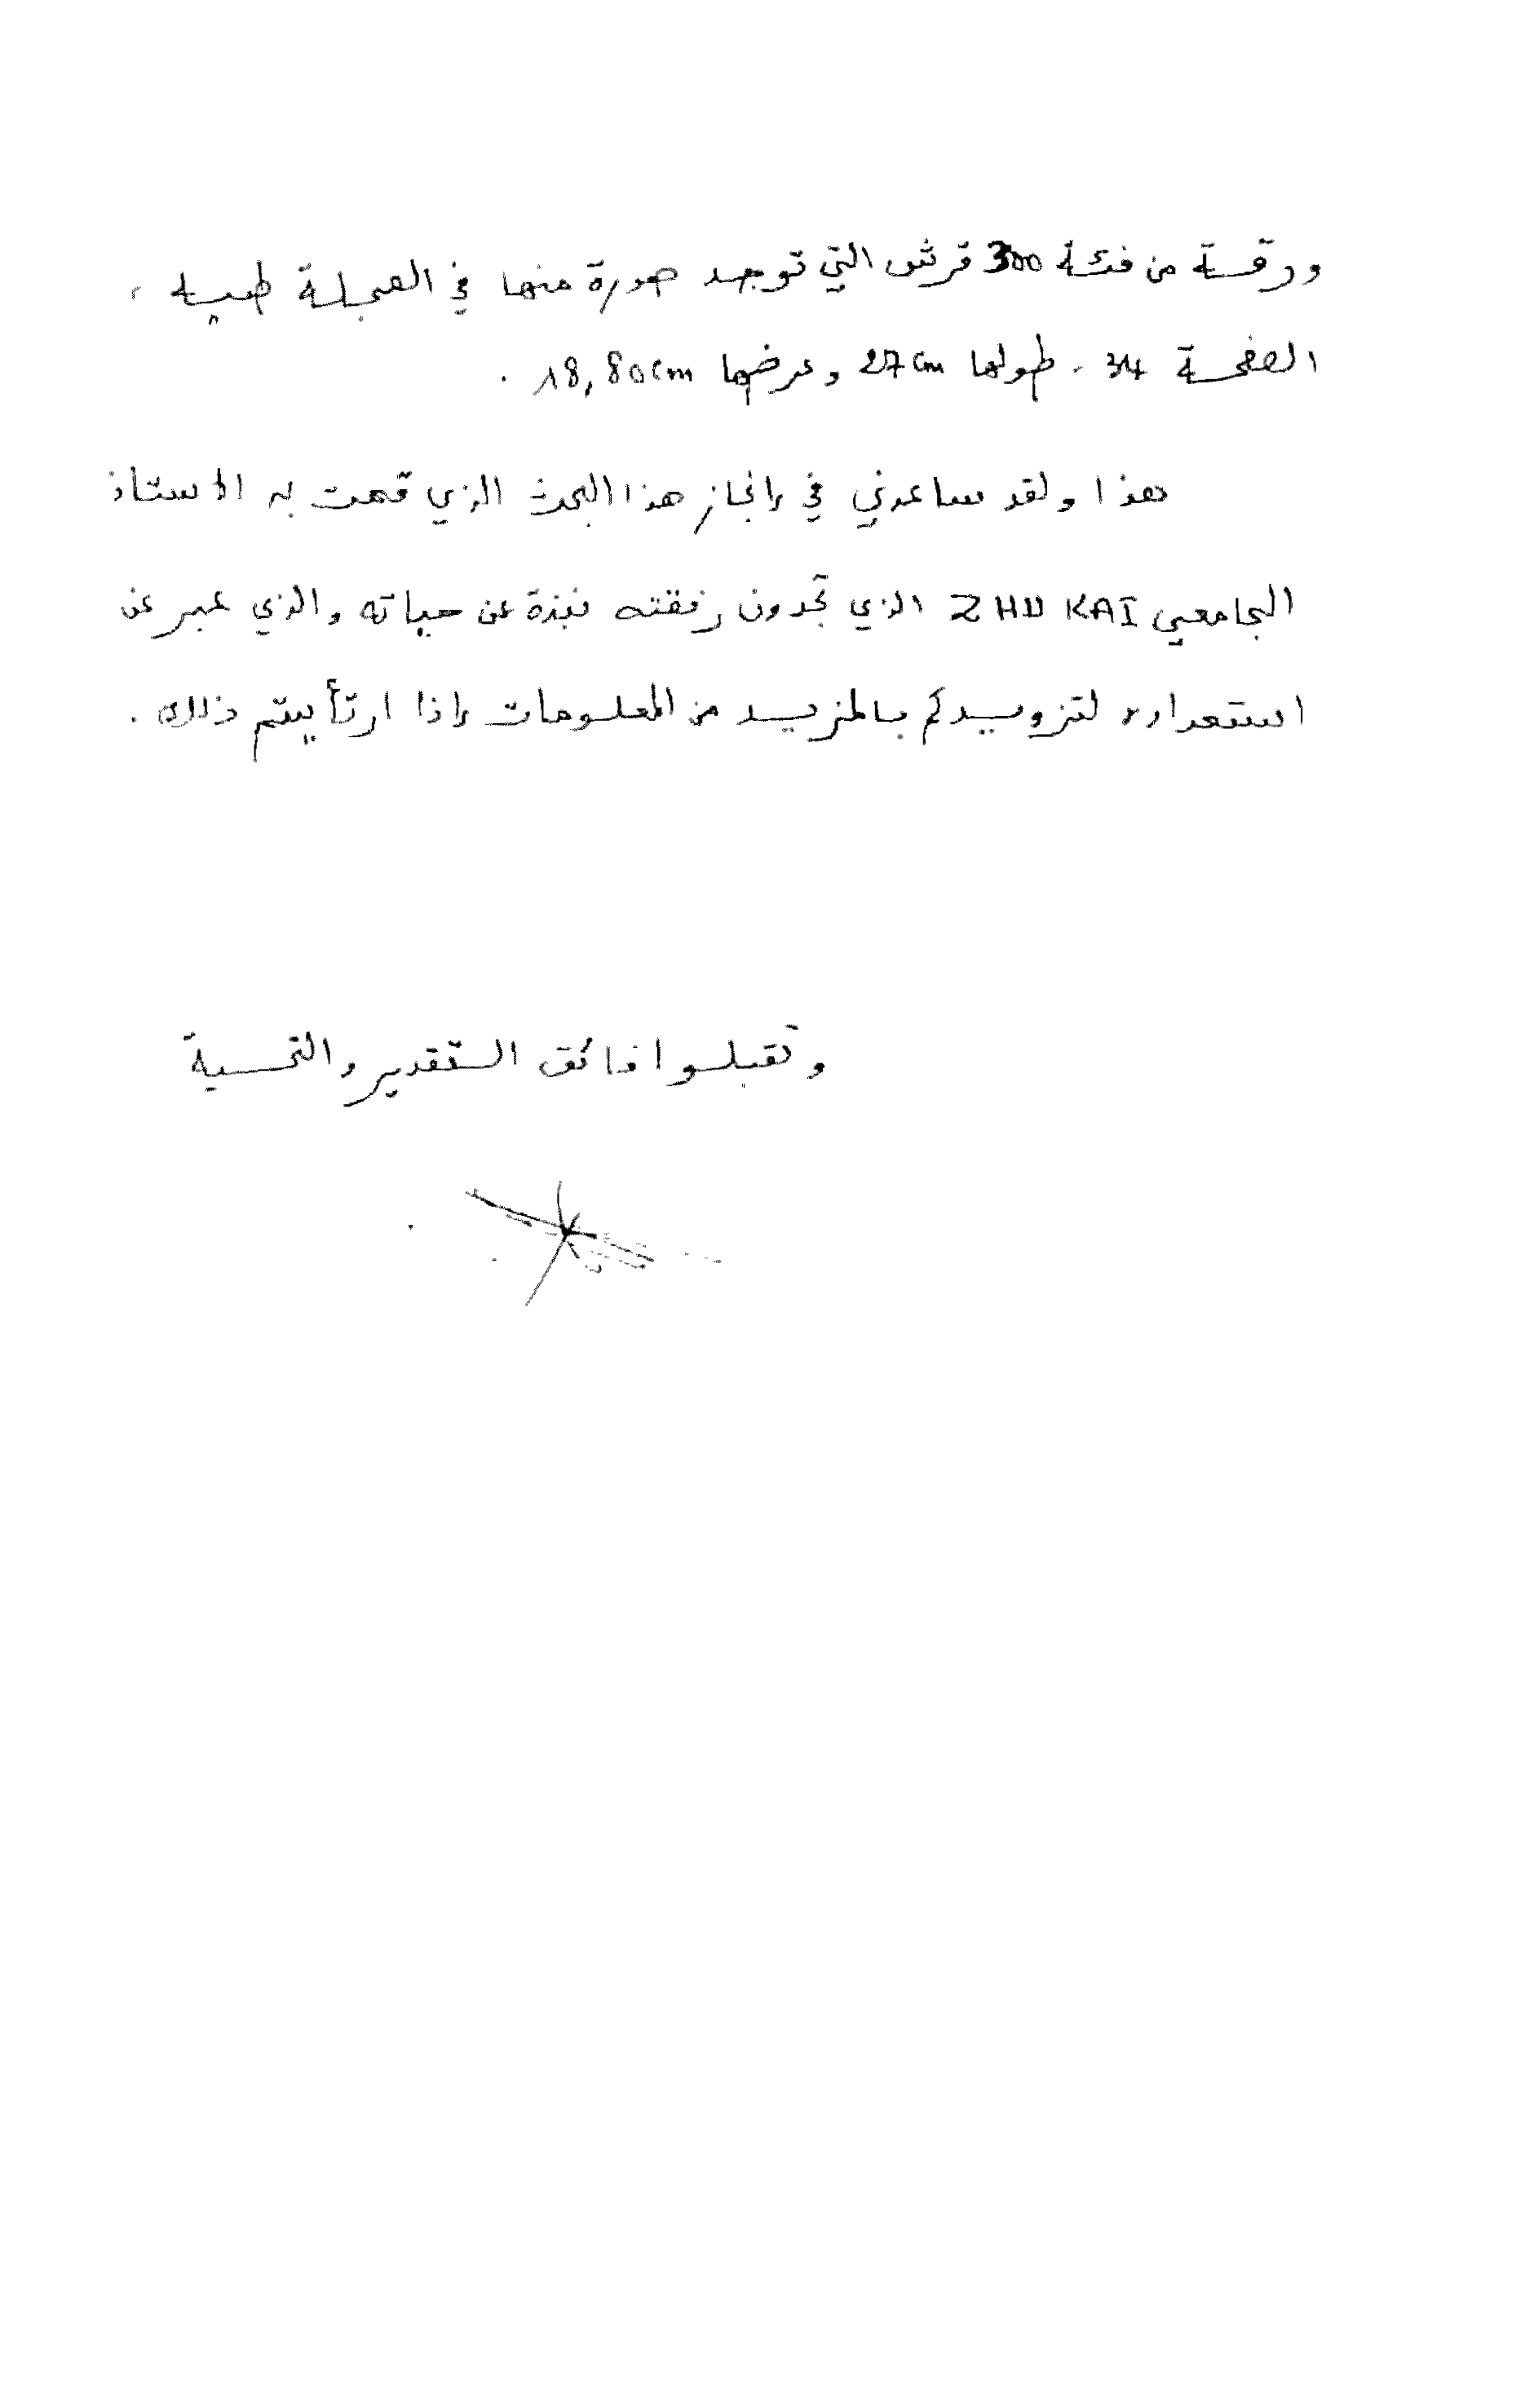 ورقة من فئة 300 قرش التي توجد صورة منها في المجلة طيه ،
الصفحة 34 . طولها 27 cm وعرضها 18,80 cm .
هذا ولقد ساعدني في إنجاز هذا البحث الذي قمت به الاستاذ
الجامعي ZHU KAI الذي تجدون رفقته نبذة عن حياته والذي عبر عن
استعداده لتزويدكم بالمزيد من المعلومات إذا ارتأيتم ذلك .
وتقبلوا فائق التقدير والتحية